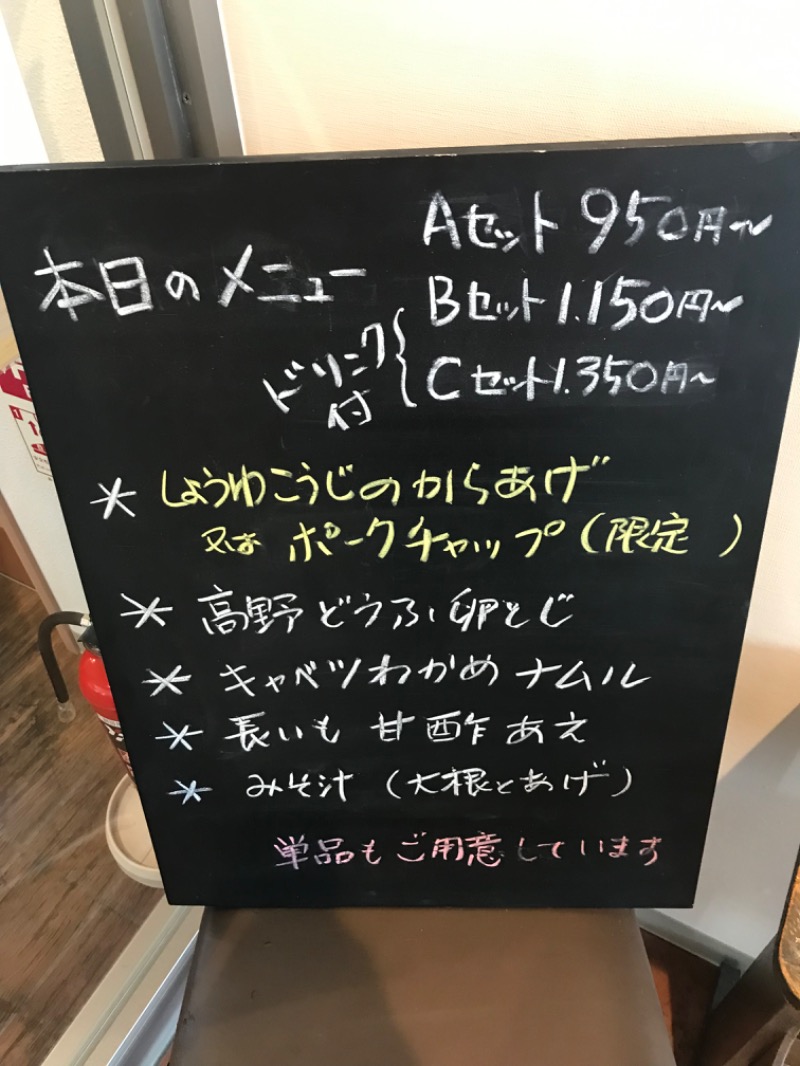 本日のメニュー
Aセット 950円~
Bセット 1.150円~
Cセット 1.350円~
ドリンク
付
* しょうゆこうじのからあげ
又は ポークチャップ(限定 )
* 高野どうふ卵とじ
* キャベツわかめナムル
* 長いも 甘酢あえ
* みそ汁 (大根とあげ)
単品もご用意しています